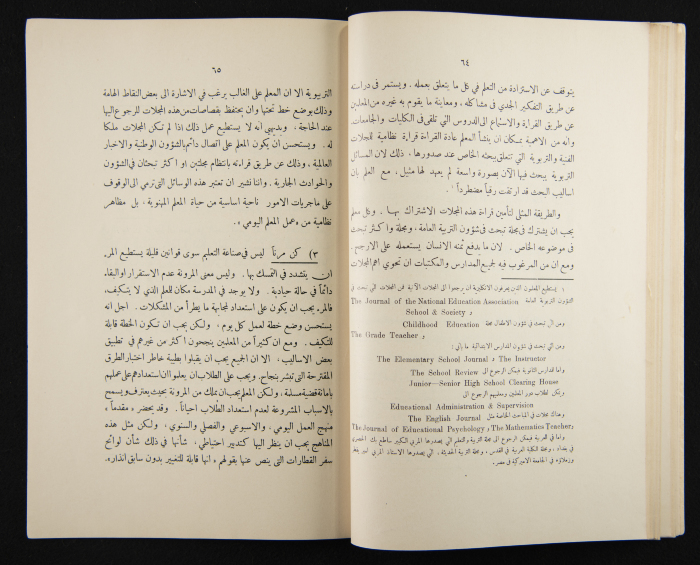 ٦٤
يتوقف عن الاستزادة من التعلم في كل ما يتعلق بعمله. ويستمر في دراسته
عن طريق التفكير الجدي في مشاكله، ومعاينة ما يقوم به غيره من المعلمين
عن طريق القرارة والاستماع الى الدروس التي تلقى في الكليات والجامعات.
وانه من الاهمية بمكان ان ينشأ المعلم عادة القراءة قراءة نظامية للمجلات
الفنية والتربوية التي تتعلق ببحثه الخاص عند صدورها. ذلك لان المسائل
التربوية يبحث فيها الآن بصورة واسعة لم يعهد لها مثيل، مع العلم بان
اساليب البحث قد ارتقت رقياً مضطرداً ١
والطريقة المثلى لتأمين قراءة هذه المجلات الاشتراك بها. وكل معلم
يجب ان يشترك في مجلة تبحث في شؤون التربية العامة، ومجلة او اكثر تبحث
في موضوعه الخاص. لان ما يدفع ثمنه الانسان يستعمله على الارجح.
ومع ان من المرغوب فيه لجميع المدارس والمكتبات ان تحوي اهم المجلات
١ يستطيع المعلمون الذين يعرفون الانكليزية ان يرجعوا الى المجلات الآتية فمن المجلات التي تبحث في
الشؤون التربوية العامة The Journal of the National Education Association
و School & Society
ومن ال تبحث في شؤون الاطفال مجلة Childhood Education
و The Grade Teacher
ومن التي تبحث في شؤون المدارس الابتدائية ما يلي:
The Elementary School Journal و The Instructor
واما المدارس الثانوية فيمكن الرجوع الى The School Review
Junior—Senior High School Clearing House
ويمكن لطلاب دور المعلمين ومعلميهم الرجوع الى
Educational Administration & Supervision
وهناك مجلات في المباحث الخاصة مثل The English Journal
The Journal of Educational Psychology و The Mathematics Teacher و
واما في العربية فيمكن الرجوع الى مجلة التربية والتعليم التي يصدرها المربي الكبير ساطع بك الحصري
في بغداد، ومجلة الكلية العربية في القدس، ومجلة التربية الحديثة، التي يصدرها الاستاذ المربي امير بقطر
وزملاؤه في الجامعة الاميركية في مصر.
٦٥
التربوية الا ان المعلم على الغالب يرغب في الاشارة الى بعض النقاط الهامة
وذلك بوضع خط تحتها وان يحتفظ بقصاصات من هذه المجلات للرجوع اليها
عند الحاجة. وبديهي انه لا يستطيع عمل ذلك اذا لم تكن المجلات ملكا
له. ويستحسن ان يكون المعلم على اتصال دائم بالشؤون الوطنية والاخبار
العالمية، وذلك عن طريق قراءته بانتظام مجلتين او اكثر تبحثان في الشؤون
والحوادث الجارية. واننا نشير ان تعتبر هذه الوسائل التي ترمي الى الوقوف
على ماجريات الامور ناحية اساسية من حياة المعلم المهنوية. بل مظاهر
نظامية من «عمل المعلم اليومي».
٣) كن مرناً ليس في صناعة التعليم سوى قوانين قليلة يستطيع المرء
ان يتشدد في التمسك بها. وليس معنى المرونة عدم الاستقرار او البقاء
دائماً في حالة حيادية. ولا يوجد في المدرسة مكان للمعلم الذي لا يتكيف،
فالمرء يجب ان يكون على استعداد لمجابهة ما يطرأ من المشكلات. اجل انه
يستحسن وضع خطة لعمل كل يوم، ولكن يجب ان تكون الخطة قابلة
للتكيف. ومع ان كثيراً من المعلمين ينجحون اكثر من غيرهم في تطبيق
بعض الاساليب، الا ان الجميع يجب ان يقبلوا بطيبة خاطر اختبار الطرق
المقترحة التي تبشر بنجاح. ويجب على الطلاب ان يعلموا ان استعدادهم على عملهم
بامانة قضية مسلمة، ولكن المعلم يجب ان يملك من المرونة بحيث يعترف ويسمح
بالاسباب المشروعة لعدم استعداد الطلاب احياناً. وقد يحضر «مقدماً»
منهج العمل اليومي، والاسبوعي والفصلي والسنوي، ولكن مثل هذه
المناهج يجب ان ينظر اليها كتدبير احتياطي، شأنها في ذلك شأن لوائح
سفر القطارات التي ينص عنها بقولهم «انها قابلة للتغيير بدون سابق انذار».